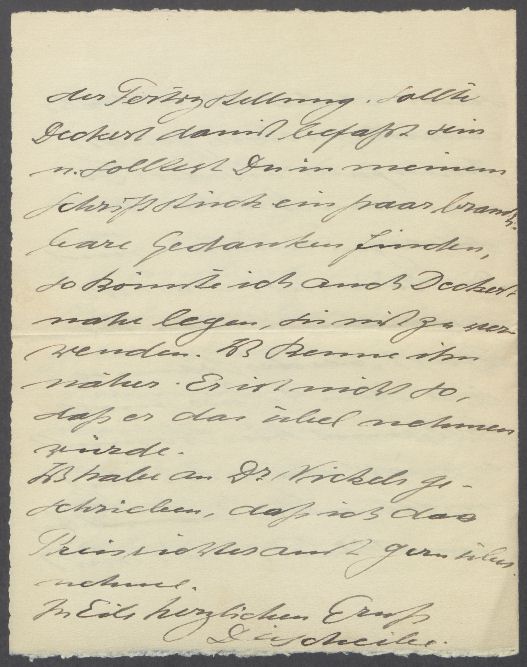 der Fertigstellung. Sollte
Deckert damit befaßt sein
u. solltest Du in meinem
Schriftstück ein paar brauch-
bare Gedanken finden,
so könnte ich auch Deckert
nahe legen, sie mit zu ver-
wenden. Ich kenne ihn
näher. Er ist nicht so,
daß er das übel nehmen
würde.
Ich habe an Dr. Nickels ge-
schrieben, daß ich das
Preisrichteramt gern über-
nehme.
In Eile herzlichen Gruß